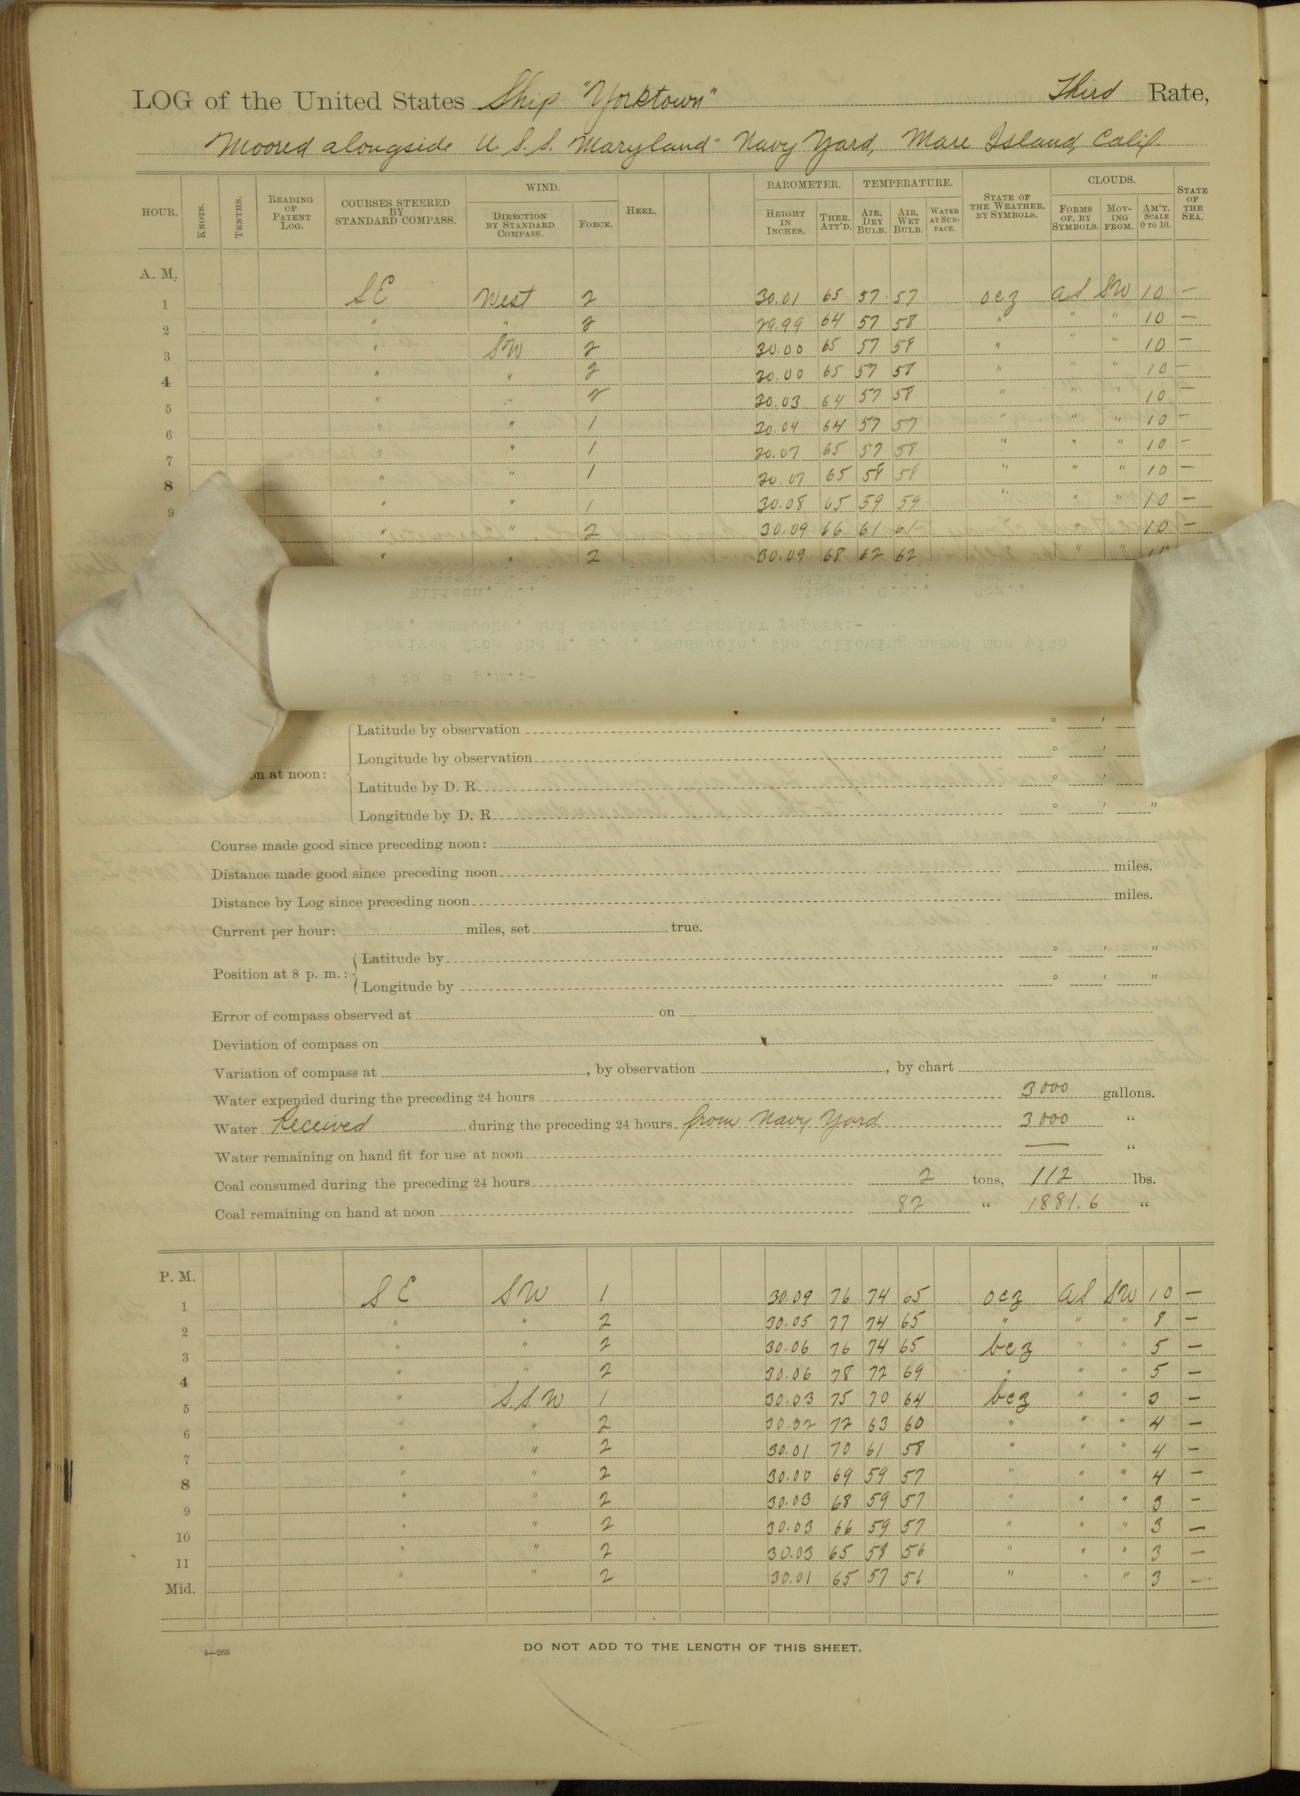 LOG of the United States Ship "Yorktown" Third Rate,
Moored alongside U.S.S. "Maryland" Navy Yard, Mare Island, Calif.
HOUR. KNOTS. TENTHS. READING OF PATENT LOG. COURSES STEERED BY STANDARD COMPASS. WIND. DIRECTION BY STANDARD COMPASS. FORCE. HEEL. BAROMETER. HEIGHT IN INCHES. THER. ATT'D. TEMPERATURE. AIR, DRY BULB. AIR, WET BULB. WATER AT SURFACE. STATE OF THE WEATHER, BY SYMBOLS. CLOUDS. FORMS OF, BY SYMBOLS. MOVING FROM. AM'T. SCALE 0 TO 10. STATE OF THE SEA.
A. M.
1 SE West 2 30.01 65 57 57 ocz as SW 10 —
2 " " 2 29.99 64 57 58 " " " 10 —
3 " SW 2 30.00 65 57 58 " " " 10 —
4 " " 2 30.00 65 57 58 " " " 10 —
5 " " 2 30.03 64 57 58 " " " 10 —
6 " 1 30.04 64 57 57 " " " 10 —
7 " " 1 30.07 65 57 58 " " " 10 —
8 " " 1 30.07 65 58 58 " " " 10 —
9 " " 1 30.08 65 59 59 " " " 10 —
" " 2 30.09 66 61 61 10 —
" " 2 30.09 68 62 62 " " " 10
Latitude by observation ° '
Longitude by observation ° '
on at noon:
Latitude by D. R. ° '
Longitude by D. R. ° ' "
Course made good since preceding noon:
Distance made good since preceding noon miles.
Distance by Log since preceding noon miles.
Current per hour: miles, set true.
Position at 8 p. m.: Latitude by ° ' "
Longitude by ° ' "
Error of compass observed at on
Deviation of compass on
Variation of compass at , by observation , by chart
Water expended during the preceding 24 hours 3000 gallons.
Water Received during the preceding 24 hours from Navy Yard 3000 "
Water remaining on hand fit for use at noon — "
Coal consumed during the preceding 24 hours 2 tons, 112 lbs.
Coal remaining on hand at noon 82 " 1881.6 "
P. M.
1 SE SW 1 30.09 76 74 65 ocz as SW 10 —
2 " " 2 30.05 77 74 65 " " " 8 —
3 " " 2 30.06 76 74 65 bcz " " 5 —
4 " " 2 30.06 78 72 69 " " " 5 —
5 " S.S.W 1 30.03 75 70 64 bcz " " 3 —
6 " " 2 30.02 72 63 60 " " " 4 —
7 " " 2 30.01 70 61 58 " " " 4 —
8 " " 2 30.00 69 59 57 " " " 4 —
9 " " 2 30.03 68 59 57 " " " 3 —
10 " " 2 30.03 66 59 57 " " " 3 —
11 " " 2 30.03 65 58 56 " " " 3 —
Mid. " " 2 30.01 65 57 56 " " " 3 —
4—265
DO NOT ADD TO THE LENGTH OF THIS SHEET.